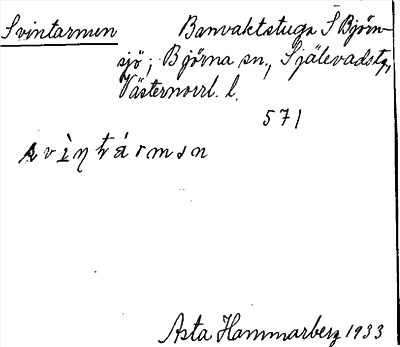 Svintarmen Banvaktstuga S Björn-
sjö; Björna sn., Själevadstg,
Västernorrl. l.
571
Asta Hammarberg 1933